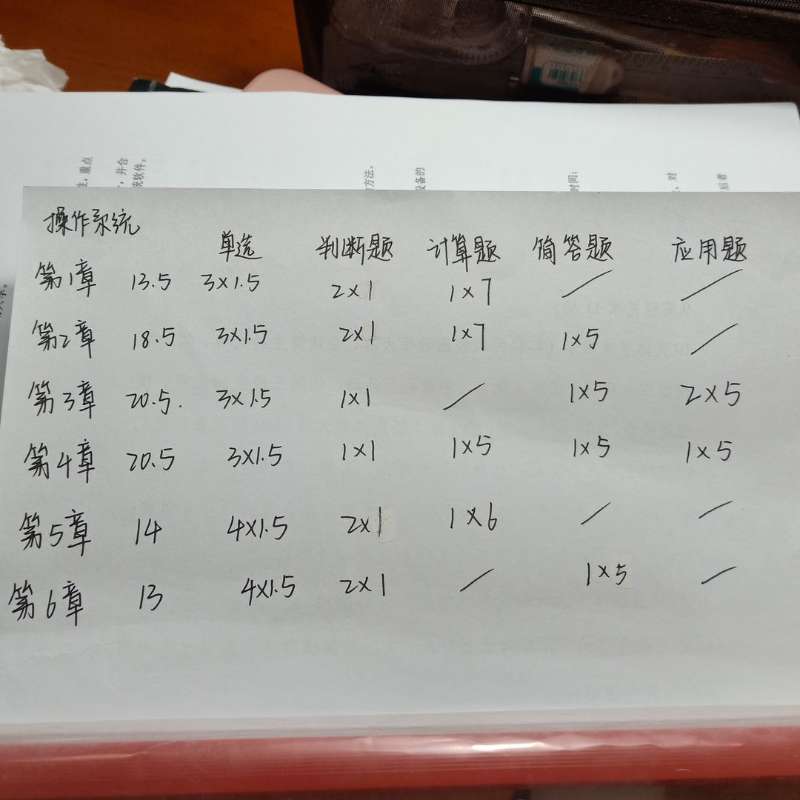 操作系统
单选 判断题 计算题 简答题 应用题
第1章 13.5 3×1.5 2×1 1×7 / /
第2章 18.5 3×1.5 2×1 1×7 1×5 /
第3章 20.5. 3×1.5 1×1 / 1×5 2×5
第4章 20.5 3×1.5 1×1 1×5 1×5 1×5
第5章 14 4×1.5 2×1 1×6 / /
第6章 13 4×1.5 2×1 / 1×5 /